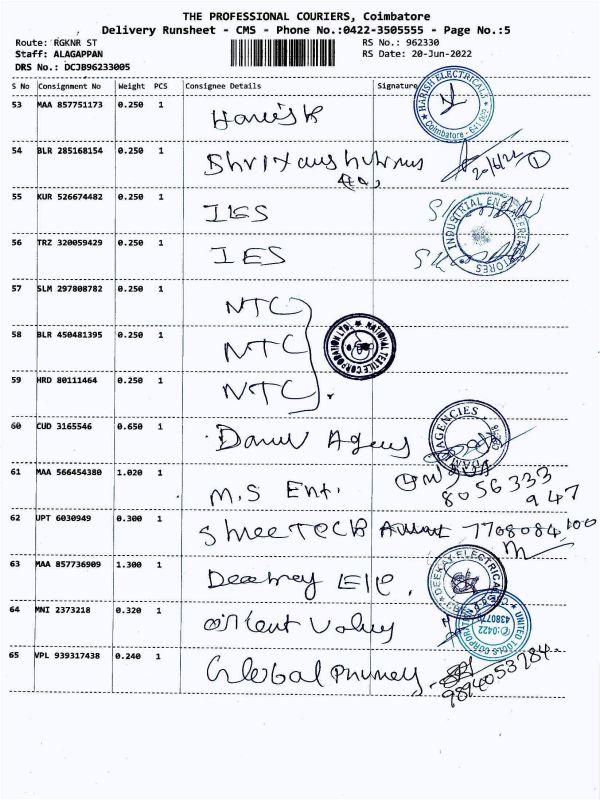 THE PROFESSIONAL COURIERS, Coimbatore
Delivery Runsheet - CMS - Phone No.:0422-3505555 - Page No.:5
Route: RGKNR ST
RS No.: 962330
Staff: ALAGAPPAN
RS Date: 20-Jun-2022
DRS No.: DCJB96233005
S No Consignment No Weight PCS Consignee Details Signature
HARISH ELECTRICALS
Coimbatore - 641 009
53 MAA 857751173 0.250 1 Harish
54 BLR 285168154 0.250 1
20/6/22 1
55 KUR 526674482 0.250 1 IES
INDUSTRIAL ENGINEERING STORES
56 TRZ 320059429 0.250 1 IES
57 SLM 297808782 0.250 1 NTC
58 BLR 450481395 0.250 1 NTC
NATIONAL TEXTILE CORPORATION LTD.
59 HRD 80111464 0.250 1 NTC
60 CUD 3165546 0.650 1
AGENCIES
61 MAA 566454380 1.020 1 M.S Ent.
8056333
947
62 UPT 6030949 0.300 1 Shree TECB 7708084100
63 MAA 857736909 1.300 1
DEEKAY ELECTRICALS
64 MNI 2373218 0.320 1
UNITED TOOLS CORPORATION
65 VPL 939317438 0.240 1 Global
9894053784